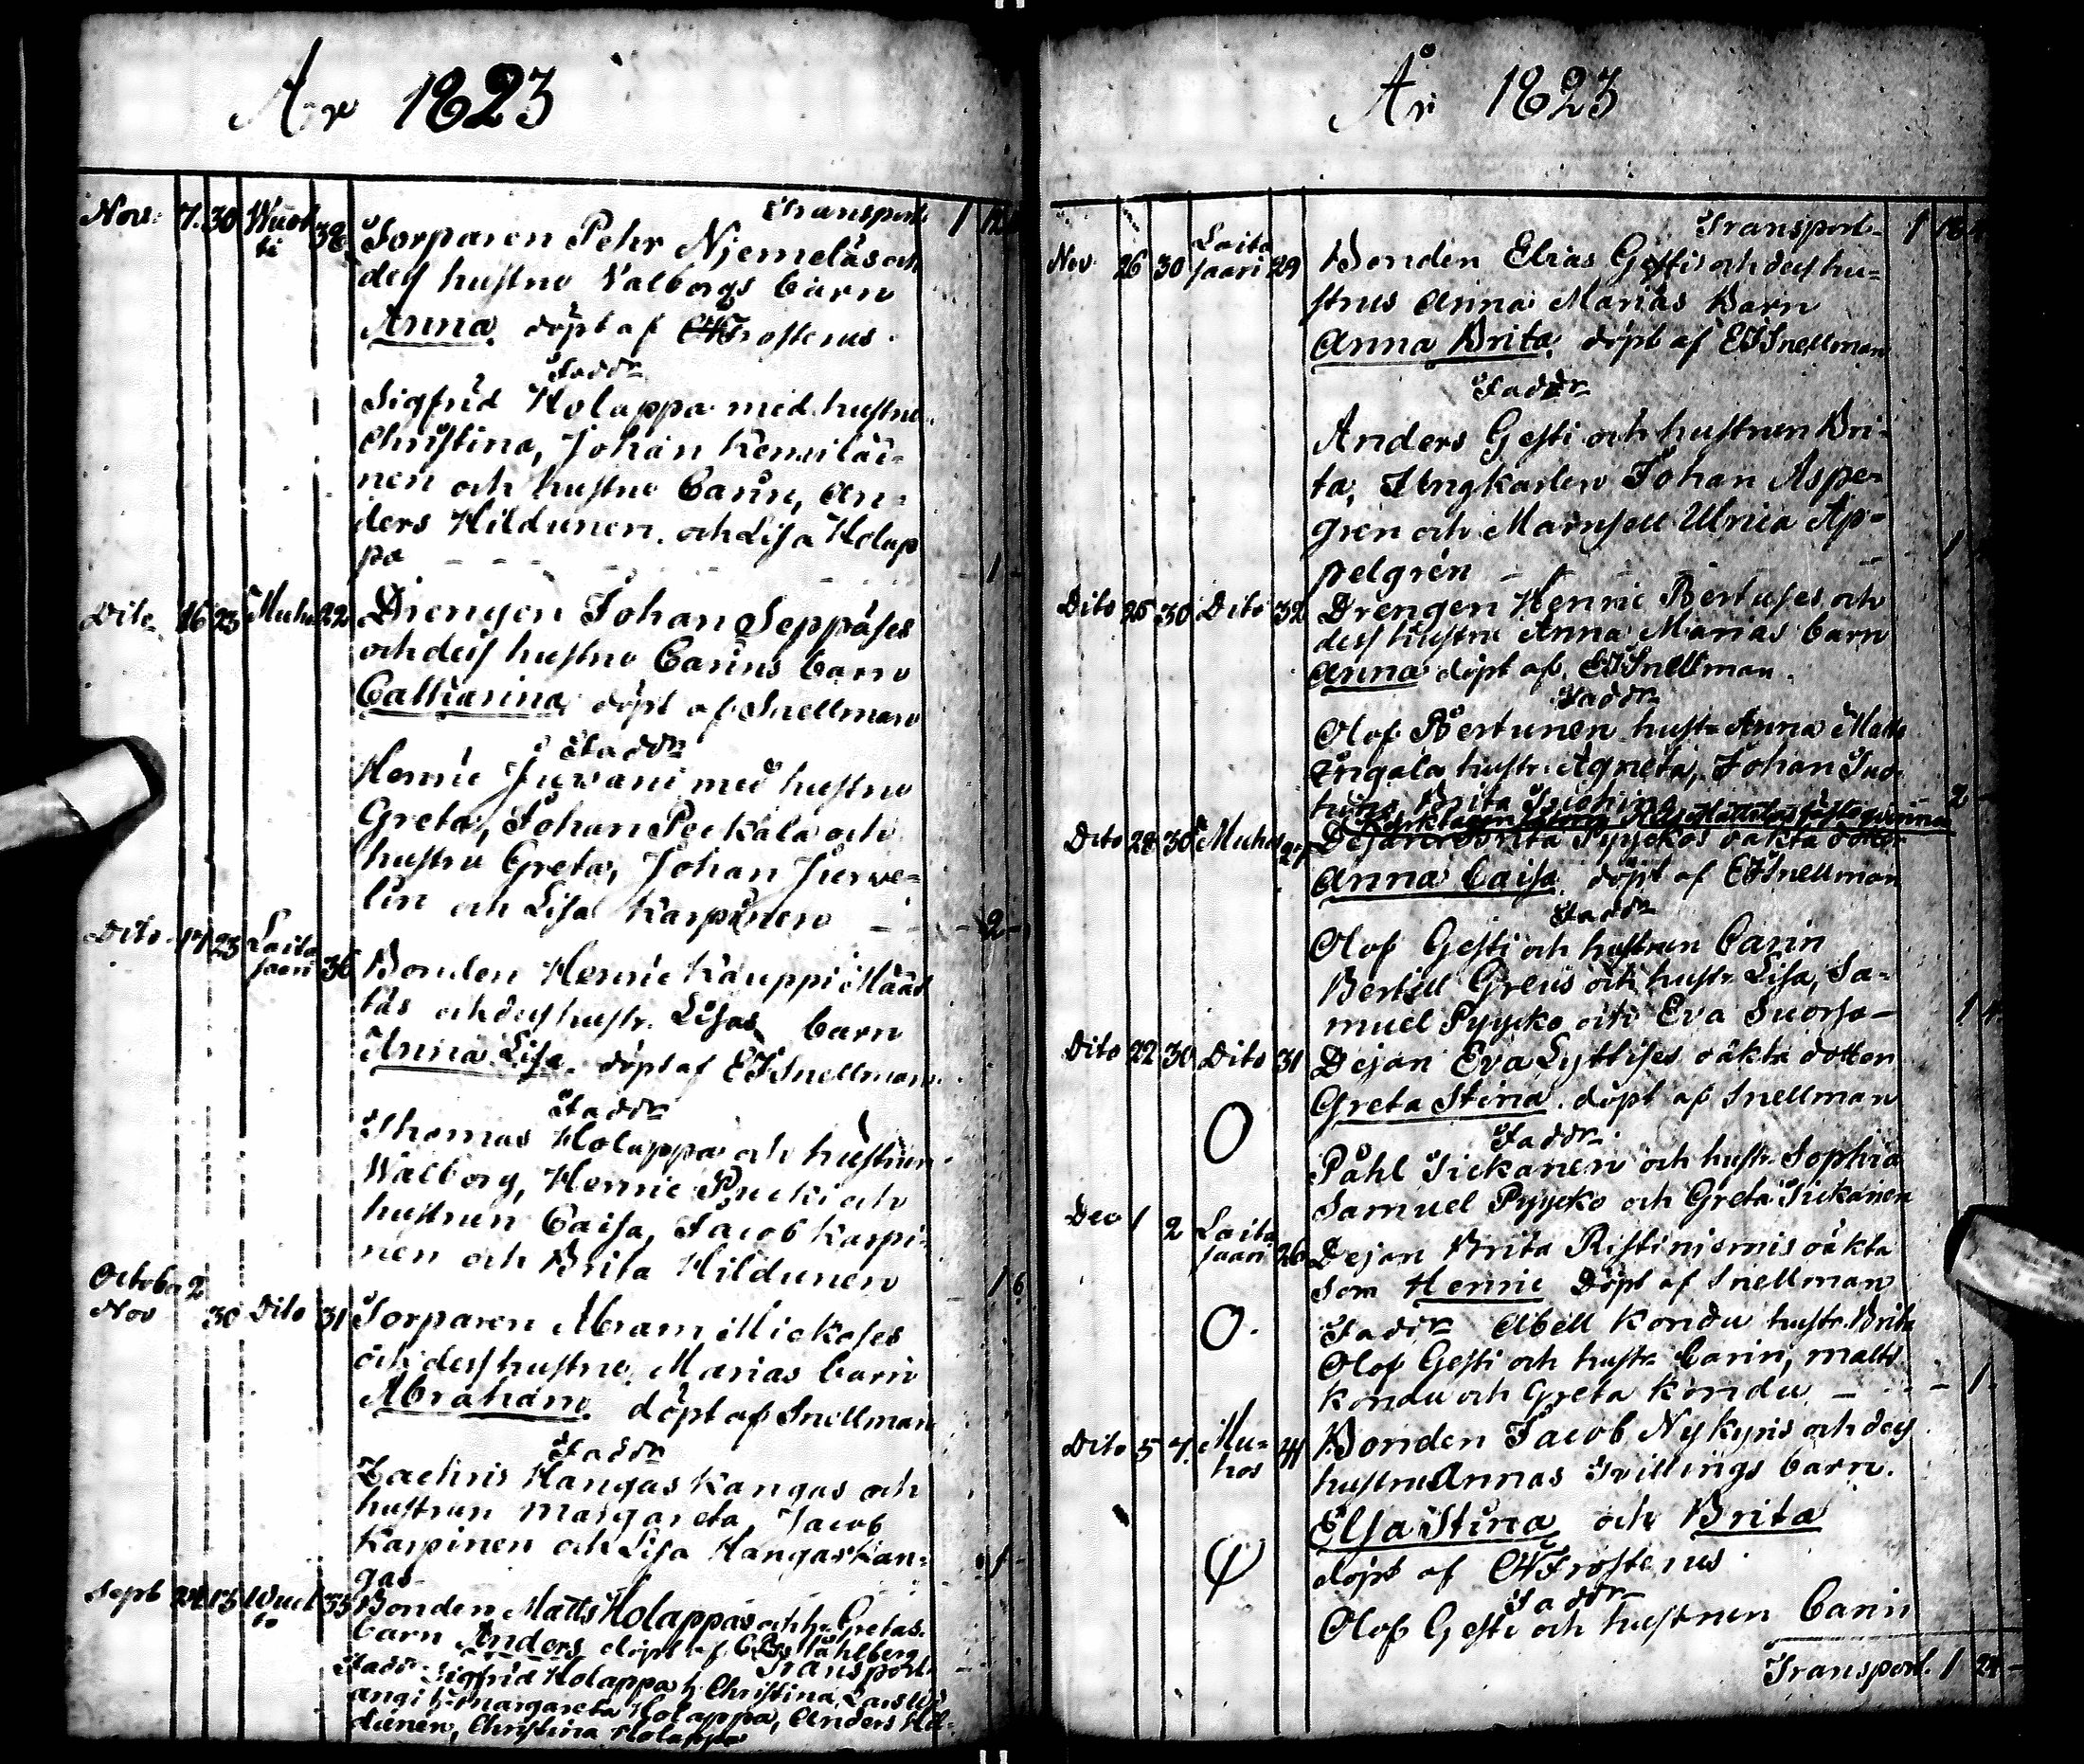 År 1823
Transport 1
Nov: 7. 30 Wuol 38 Torparen Pehr Njemeläs och
ti dess hustru Valborgs barn
Anna döpt af CHFrosterus.
Faddr
Sigfrid Holappa med hustru
Christina, Johan Kemiläi-
nen och hustru Carin, An-
ders Hildunen och Lisa Holap
pa - - - - 1 -
Dito 16 23 Muhos 22 Drengen Johan Seppäses
och dess hustru Carins barn
Catharina döpt af Snellman
Faddr
Henric Juvani med hustru
Greta, Johan Peckala och
hustru Greta, Johan Jurve-
lin och Lisa Karpinen - - 2 -
Dito 17 23 Laita 36 Bonden Henric Kauppi Määt
saari täs och dess hustr. Lisas barn
Anna Lisa döpt af EJSnellman
Faddr
Thomas Holappa och hustrun
Walborg, Henric Pucki och
hustrun Caisa, Jacob Karpi-
nen och Brita Hildunen - 1 6
October 2
Nov 30 Dito 31 Torparen Abram Mickoses
och dess hustru Marias barn
Abraham döpt af Snellman
Faddr
Zachris Hangaskangas och
hustrun Margareta, Jacob
Karpinen och Lisa Hangaskan-
gas
Sept 24 13 Wuol 33 Bonden Matts Holappas och h. Gretas
to barn Anders döpt af Ståhlberg
Transport
Fadr Sigfrid Holappa h. Christina, Lars
angi h. Margareta Holappa, Anders Hil-
dunen, Christina Holappa
År 1823
Transport 1 18
Nov 26 30 Laita 29 Bonden Elias Gesti och dess hu-
saari strus Anna Marias Barn
Anna Brita döpt af EJSnellman
Faddr
Anders Gesti och hustrun Bri-
ta, Ungkarlen Johan Aspe-
gren och Mamsell Ulrica Ap-
pelgrén - - - 1
Dito 25 30 Dito 32 Drengen Henric Bertuses och
dess hustru Anna Marias barn
Anna döpt af EJSnellman.
Faddr
Olof Bertunen hustr Anna Matts
Ingala hustr. Agneta, Johan
hustr Brita - 2 -
fästeqvinna
Dito 28 30 Muhos 27 Dejan Brita Pyyckos oäkta dotter
Anna Caisa döpt af EJSnellman
Faddr
Olof Gesti och hustrun Carin
Bertill Greus och hustr Lisa, Sa-
muel Pyycko och Eva Suorsa - 1 4
Dito 22 30 Dito 31 Dejan Eva Lyttises oäkta dotter
Greta Stina döpt af Snellman
O Faddr
Påhl Sickanen och hustr Sophia
Samuel Pyycko och Greta Sickanen
Dec 1 2 Laita
saari 26 Dejan Brita Ristiniemis oäkta
son Henric Döpt af Snellman
O. Faddr Abell Kondu hustr. Brita
Olof Gesti och hustr Carin, Matts
Kondu och Greta Kondu - - 1
Dito 5 7. Mu- 41 Bonden Jacob Nykyris och dess
hos hustru Annas Tvillings barn.
Elsa Stina och Brita
döpt af CHFrosterus
Faddr
Olof Gesti och hustrun Carin
Transport 1 24 -